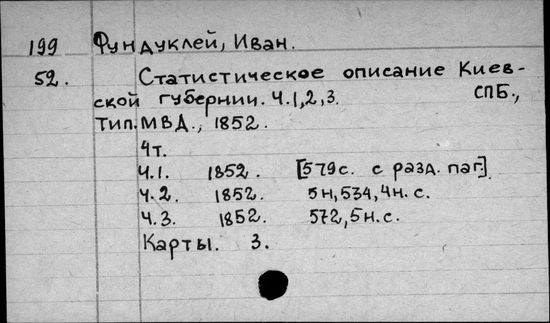 199 Фундуклей, Иван.
52. Статистическое описание Киев-
ской губернии. Ч.1,2,3. СПБ.,
Тип. МВД., 1852.
4т.
Ч.1. 1852. [579с. с разд. паг.]
Ч.2. 1852. 5н,534,4н.с.
Ч.3. 1852. 572,5н.с.
Карты. 3.